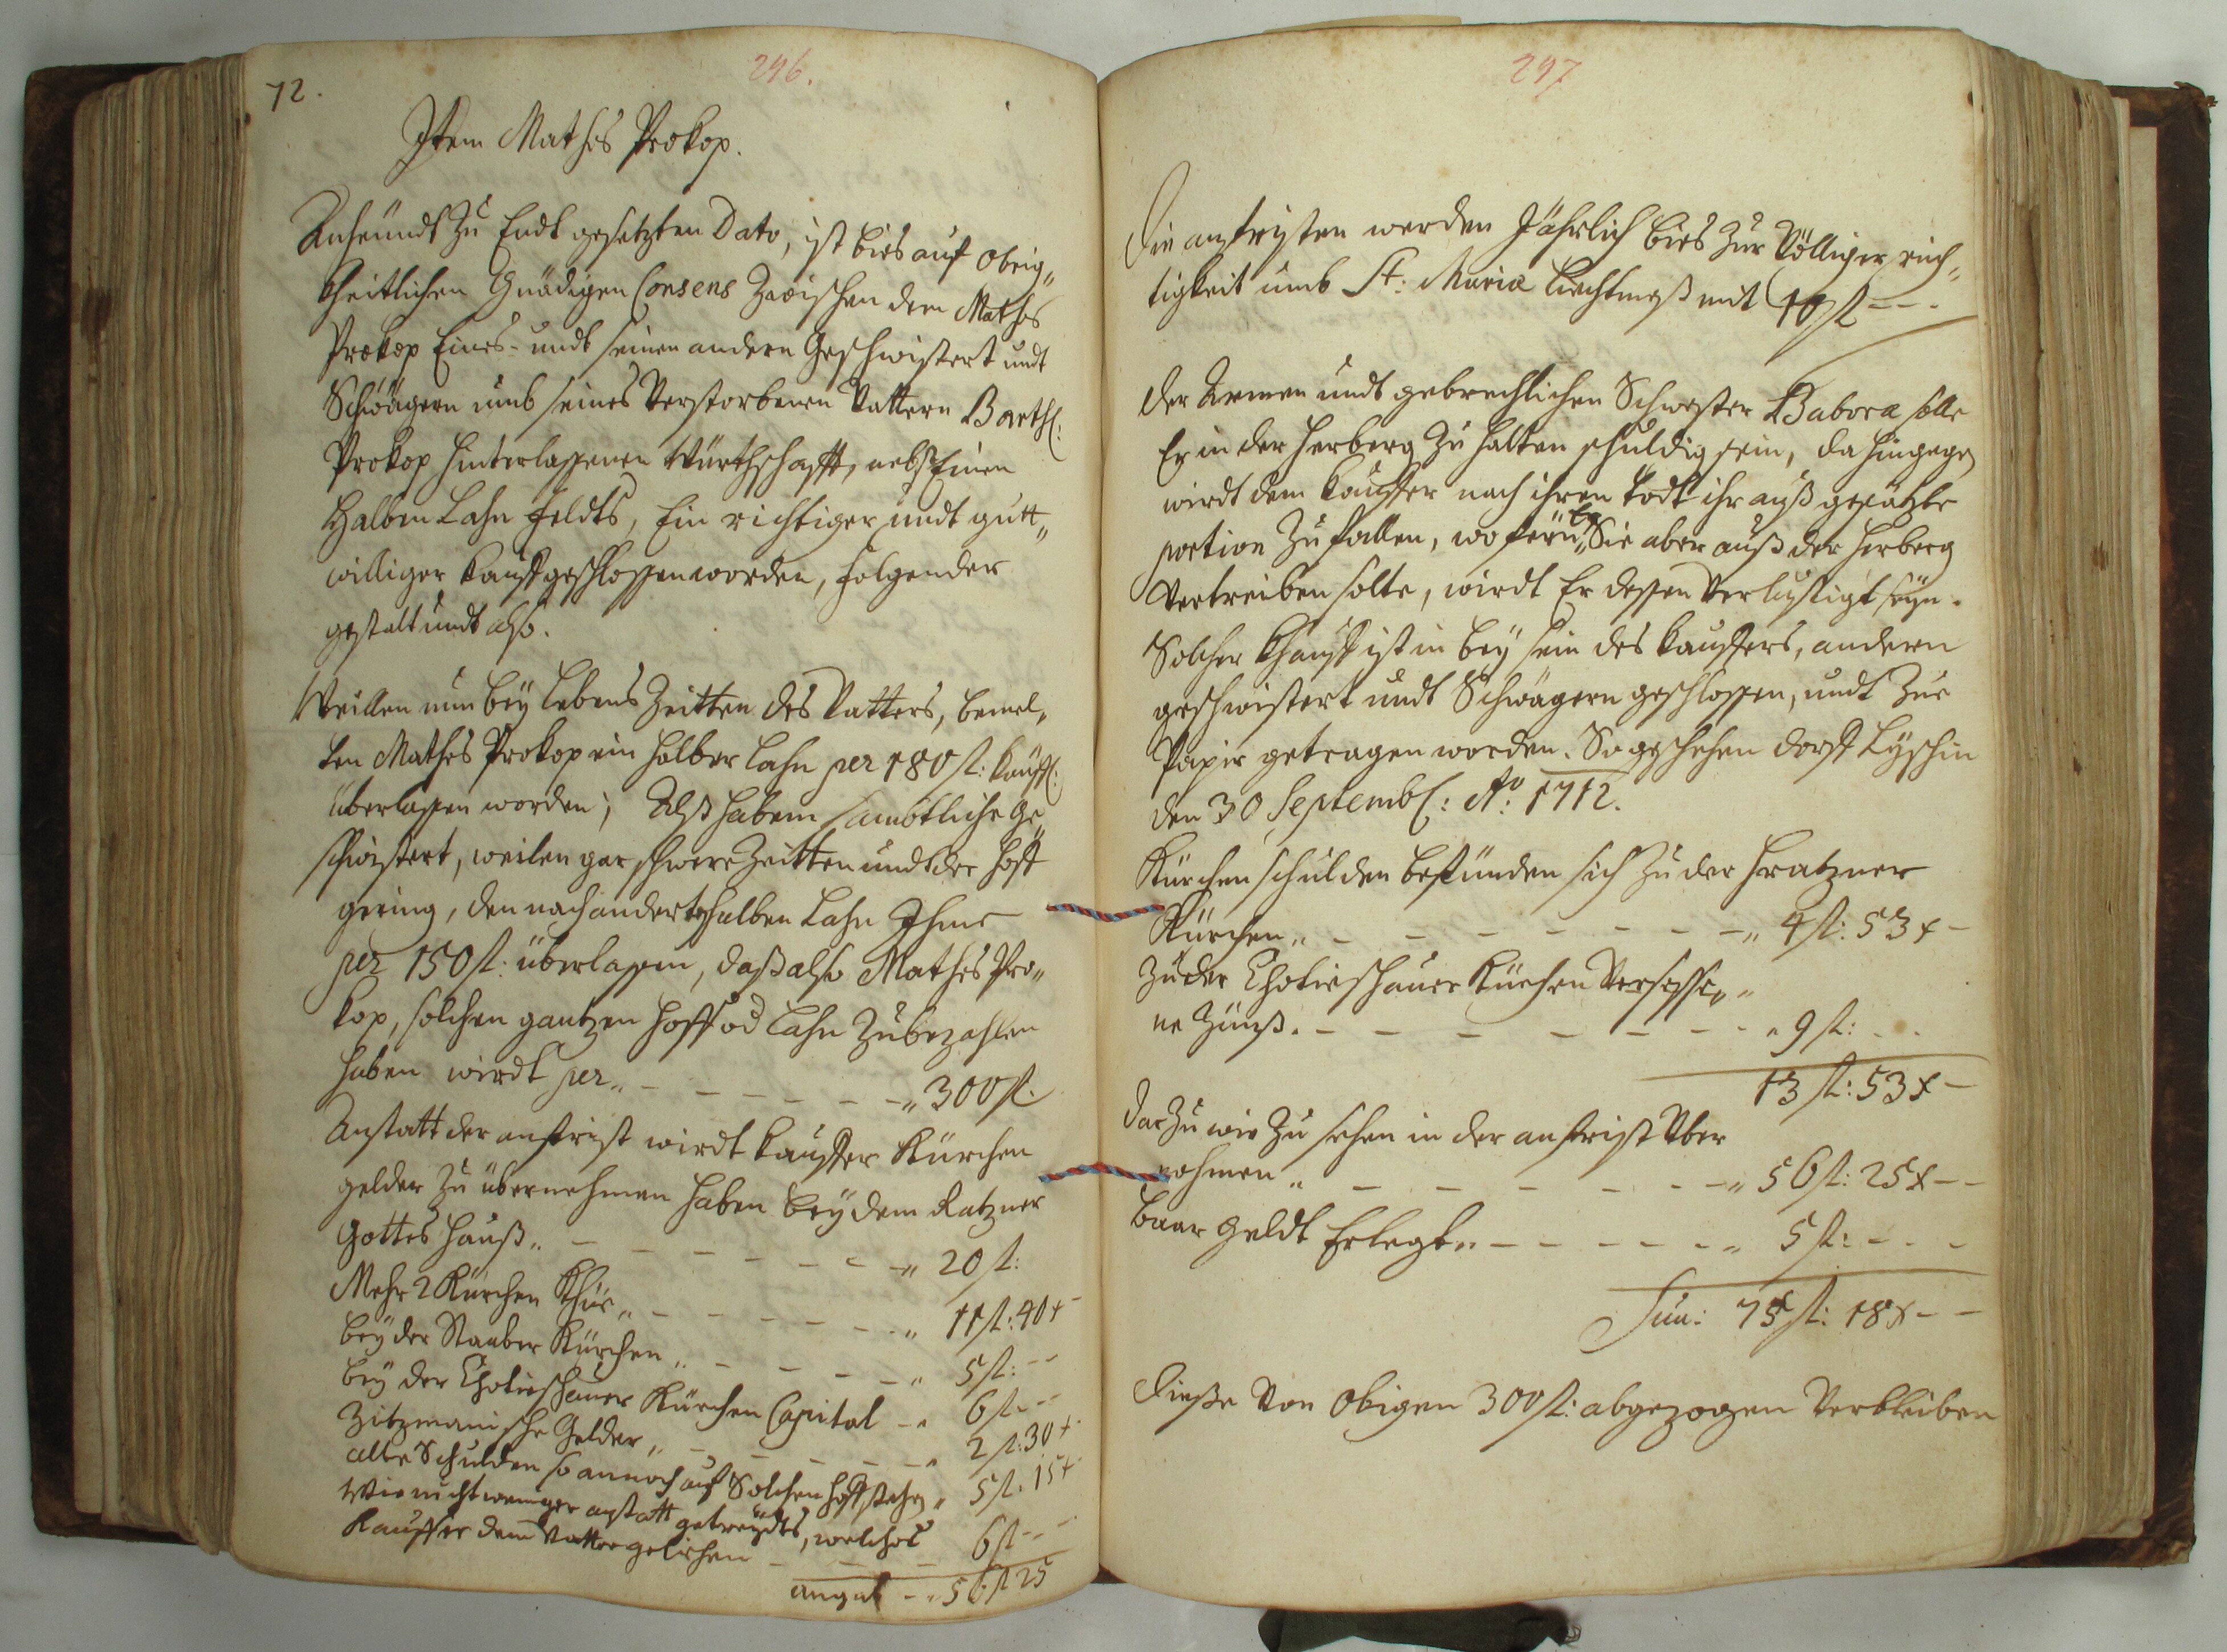 72.
296.
Item Mathes Prokop.
Anheündt zu Endt gesetzten Dato, ist bies auf obrig„
kheitlichen Gnädigen Consens Zwischen dem Mathes
Prokop Eines- undt seinen andern Geschwistert undt
Schwägern umb seines Verstorbenen Vattern Barthl:
Prokop hinterlassenen Würthschafft, nebst Einen
Halben Lahn feldts, Ein richtiger undt gutt„
williger Kauff geschlossen worden, folgender
gestalt undt also.
Weillen nun bey lebens Zeitten des Vatters, bemel„
ten Mathes Prokop ein halber Lahn per 180 fl: Kauffl:
überlassen worden; Alß haben sambtliche Ge„
schwistert, weilen gar schwere Zeitten undt der Hoff
gering, den nach anderten halben Lahn Ihme
per 150 fl: überlassen, daß also Mathes Pro„
kop, solchen gantzen Hoff od Lahn Zubezahlen
haben wirdt per„ – – – – – –„ 300 fl.
Anstatt der anfrist wirdt Kauffer Kürchen
gelder Zu übernehmen haben bey dem Ratzner
Gottes Hauß„ – – – – – – –„ 20 fl:
Mehr 2 Kürchen Khüe„ – – – – – –„ 11 fl: 40 x
bey der Staaber Kürchen„ – – – – –„ 5 fl: – –
bey der Chotieschauer Kürchen Capital –„ 6 fl – –
Zitzmanische Gelder„ – – – – – –„ 2 fl: 30 x
alte Schulden so annoch auf Solchen Hoff stehen„ 5 fl: 15 x
Wie nicht weniger anstatt getreydts, welches
Kauffer dem Vatter gelichen – – – 6 fl – –
angab –„ 56 fl 25
297
Die anfristen werden Jährlich bies Zur Völliger rich„
tigkeit umb St: Mariæ Liechtmeß mit 10 fl – – –
Der Armen undt gebrechlichen Schwester Babora solle
Er in der Herberg Zu halten schuldig sein, da hingegen
wirdt dem Kauffer nach ihren todt ihr auß gesätzte
portion Zu fallen, wo fern Er Sie aber auß der Herberg
Vertreiben solte, wirdt Er dessen Verlustigt seyn.
Solcher Khauff ist in bey sein des Kauffers, andern
geschwistert undt Schwägern geschlossen, undt Zue
Papir getragen worden. So geschehen dorff Lyschin
den 30 Septembl: Aō: 1712.
Kürchen schulden befünden sich Zu der Hratzner
Kürchen„ – – – – – – – –„ 4 fl: 53 x –
Zu der Chotieschauer Kürchen Versesse„
ne Zünß. – – – – – – – –„ 9 fl: – –
13 fl: 53 x –
Dar Zu wie Zu sehen in der anfrist Über
nohmen„ – – – – – – –„ 56 fl: 25 x – –
Baar Geldt Erlegt„ – – – – – –„ 5 fl: – – –
Sum: 75 fl: 18 x – –
Dieße Von Obigen 300 fl: abgezogen Verbleiben